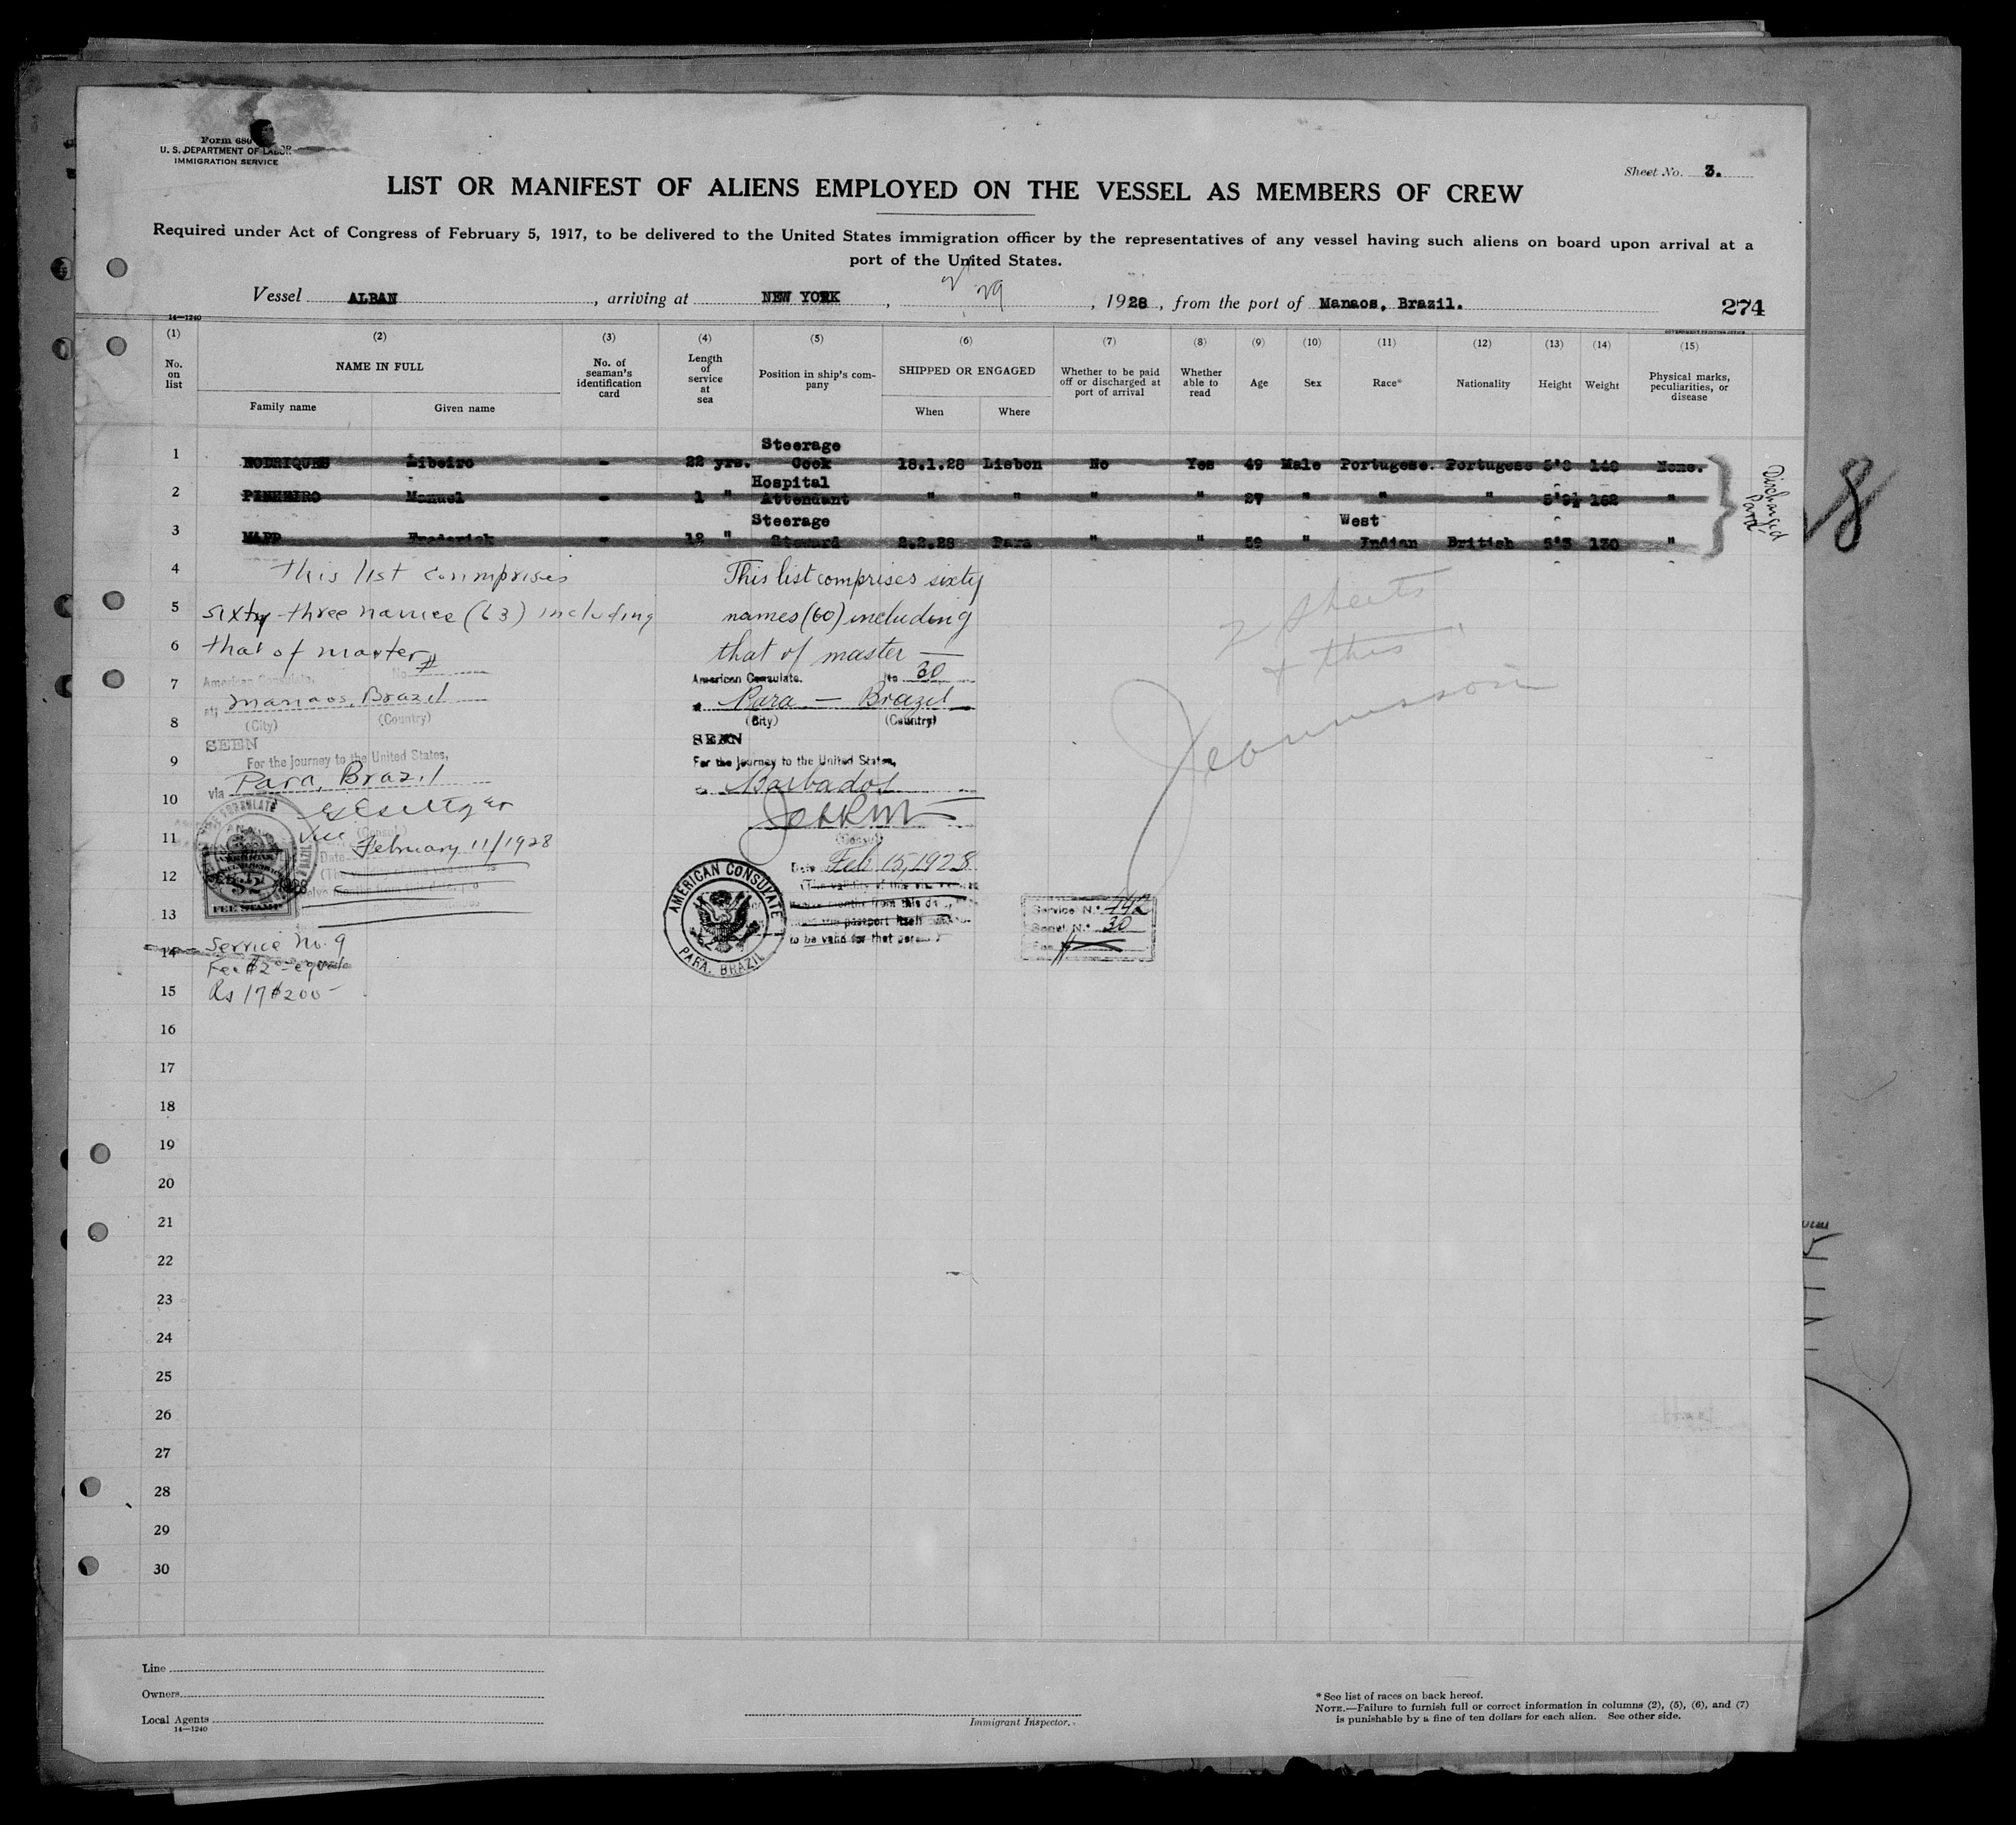 Form 680
U. S. DEPARTMENT OF LABOR
IMMIGRATION SERVICE
Sheet No. 3.
LIST OR MANIFEST OF ALIENS EMPLOYED ON THE VESSEL AS MEMBERS OF CREW
Required under Act of Congress of February 5, 1917, to be delivered to the United States immigration officer by the representatives of any vessel having such aliens on board upon arrival at a
port of the United States.
Vessel ALBAN, arriving at NEW YORK, 2/29, 1928, from the port of Manaos, Brazil.
274
14—1240
(1) (2) (3) (4) (5) (6) (7) (8) (9) (10) (11) (12) (13) (14) (15)
No. on list
NAME IN FULL
Family name Given name
No. of seaman's identification card
Length of service at sea
Position in ship's company
SHIPPED OR ENGAGED
When Where
Whether to be paid off or discharged at port of arrival
Whether able to read
Age
Sex
Race*
Nationality
Height
Weight
Physical marks, peculiarities, or disease
1 RODRIQUES Libeiro - 22 yrs. Steerage Cook 18.1.28 Lisbon No Yes 49 Male Portugese. Portugese 140 None.
2 PINHEIRO Manuel - 1 " Hospital Attendant " " " " 27 " " " 5'9½ 162 "
3 MAPP Frederick - 12 " Steerage Steward 2.2.28 Para " " 59 " West Indian British 5'5 130 "
Discharged Para
8
4
5
6
7
8
9
10
11
12
13
14
15
16
17
18
19
20
21
22
23
24
25
26
27
28
29
30
This list conmprises
sixty-three names (63) including
that of master
American Consulate, No.
at Manaos, Brazil
(City) (Country)
SEEN
For the journey to the United States,
via Para, Brazil
Vice (Consul)
Date February 11/1928
FEE STAMP
Service No. 9
Fee $2 = equals
Rs 17$200
This list comprises sixty
names (60) including
that of master —
American Consulate. No 30
Para — Brazil
(City) (Country)
SEEN
For the journey to the United States,
Barbados
(Consul)
Date Feb 15, 1928
(The validity of this
months from this da
passport itself
to be valid for that
AMERICAN CONSULATE
PARA. BRAZIL
Service N.º 442
N.º 30
Fee
2 sheets
& this
Line
Owners
Local Agents
14—1240
Immigrant Inspector.
* See list of races on back hereof.
NOTE.—Failure to furnish full or correct information in columns (2), (5), (6), and (7)
is punishable by a fine of ten dollars for each alien. See other side.